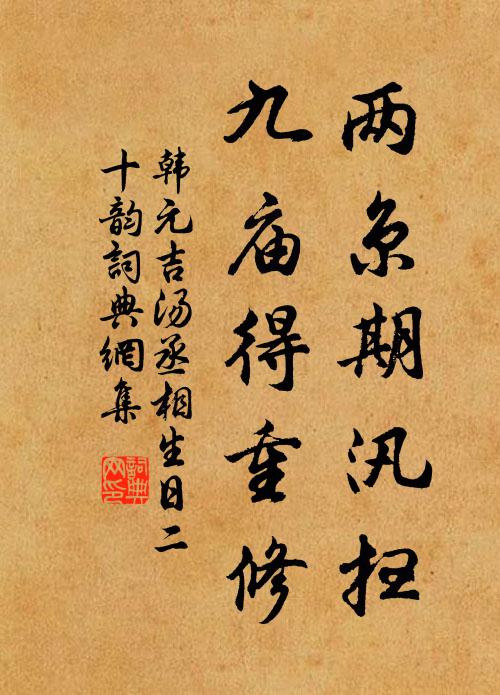 两京期汛扫
九庙得重修
韩元吉汤丞相生日二
十韵詞典網集
詞典
网印